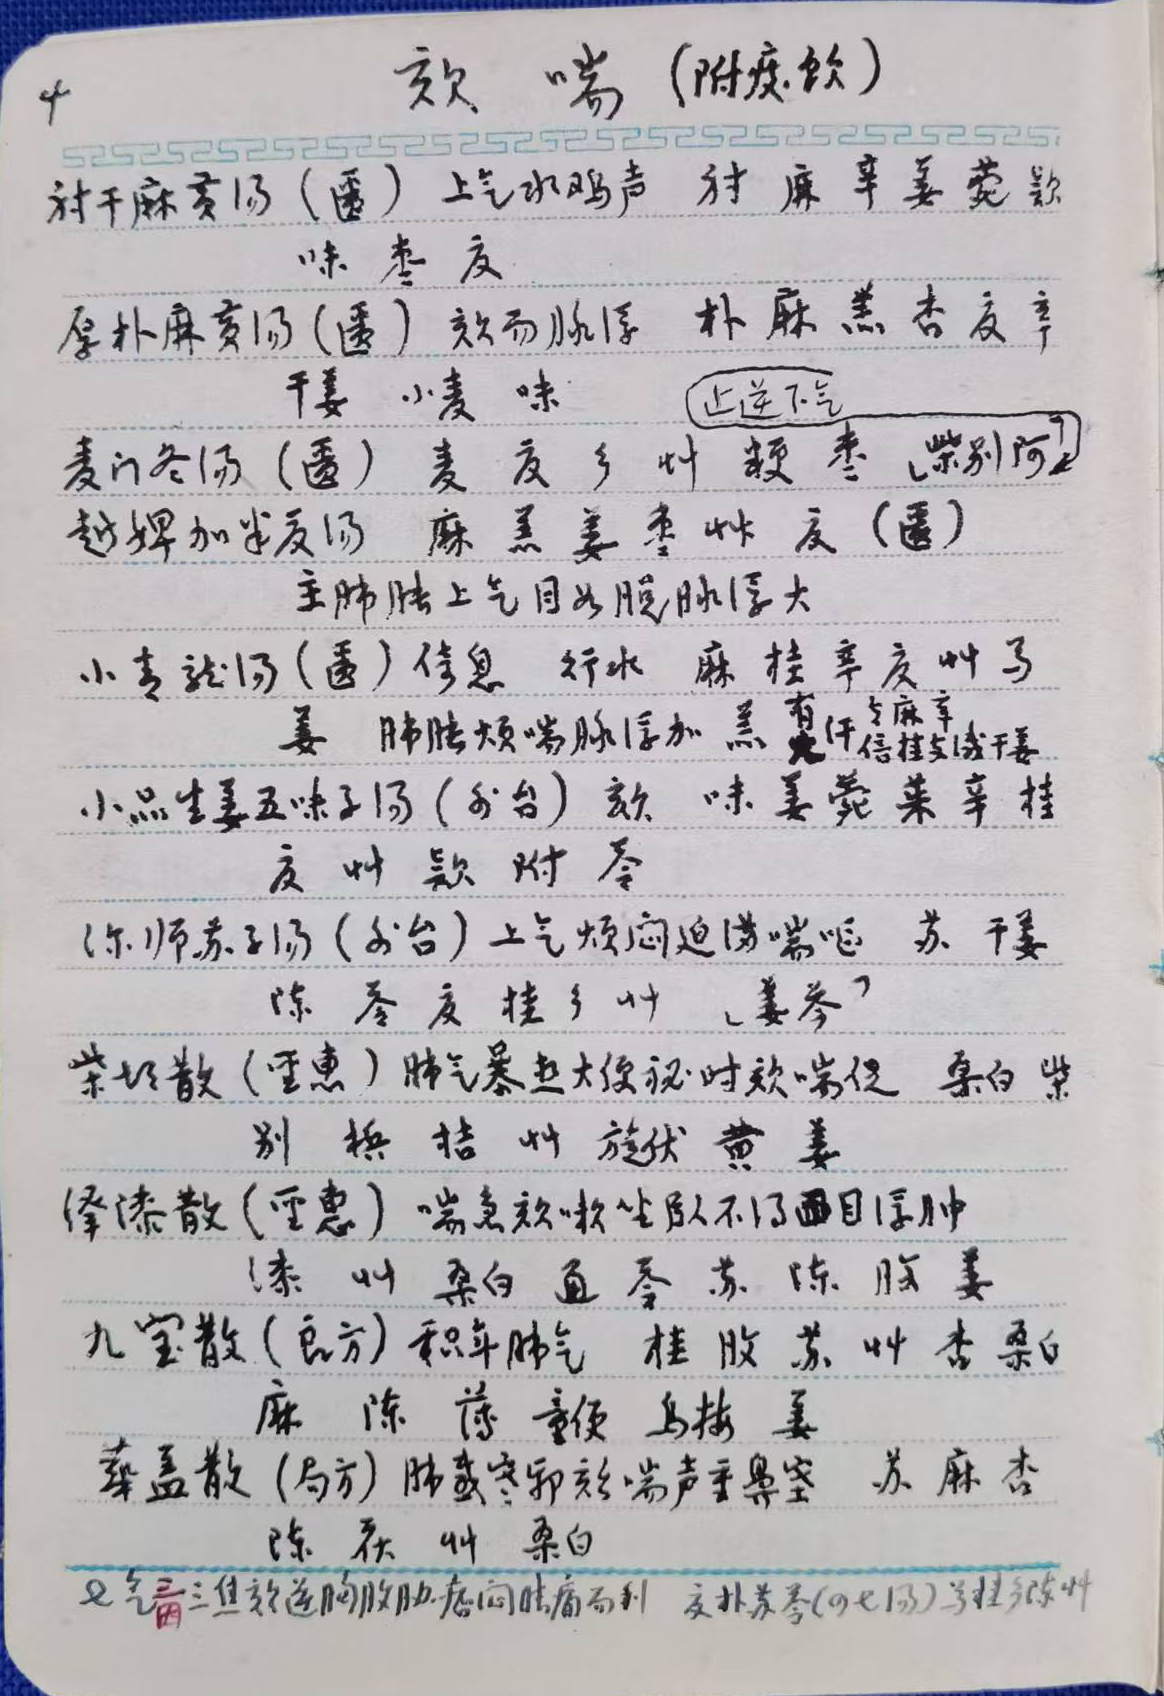 4
欬 喘 (附痰飲)
射干麻黄汤 (匱) 上气水鸡声 射 麻 辛 姜 菀 款
味 枣 夏
厚朴麻黄汤 (匱) 欬而脉浮 朴 麻 羔 杏 夏 辛
干姜 小麦 味 止逆下气
麦门冬汤 (匱) 麦 夏 参 艹 粳 枣 「柴别阿」
越婢加半夏汤 麻 羔 姜 枣 艹 夏 (匱)
主肺胀上气目如脱脉浮大
小青龙汤 (匱) 倚息 行水 麻 桂 辛 夏 艹 芍
姜 肺胀烦喘脉浮加 羔 有汗 麻 辛
倍桂 干姜
小品生姜五味子汤 (外台) 欬 味 姜 菀 辛 桂
夏 艹 款 附 苓
深师苏子汤 (外台) 上气烦闷迫满喘呕 苏 干姜
陈 苓 夏 桂 参 艹 「姜参」
柴胡散 (圣惠) 肺气暴热大便秘时欬喘促 桑白 柴
别 槟 桔 艹 旋伏 黄 姜
泽漆散 (圣惠) 喘急欬嗽坐卧不得面目浮肿
漆 艹 桑白 通 苓 苏 陈 腹 姜
九宝散 (良方) 积年肺气 桂 腹 苏 艹 杏 桑白
麻 陈 薄 童便 乌梅 姜
华盖散 (局方) 肺感寒邪欬喘声重鼻塞 苏 麻 杏
陈 茯 艹 桑白
七气 三因 三焦欬逆胸腹胁 闷胀痛而利 夏朴苏苓(四七汤)芍桂参陈艹